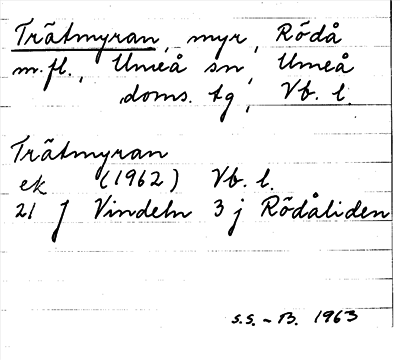 Trätmyran, myr, Rödå
m.fl., Umeå sn, Umeå
doms. tg, Vb. l.
Trätmyran
ek (1962) Vb. l.
21 J Vindeln 3 j Rödåliden
S.S. - B. 1963